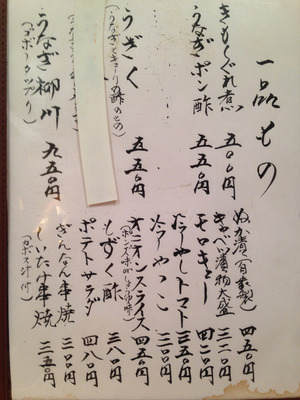 一品もの
きもしぐれ煮 五〇〇円
うなぎポン酢 五五〇円
うざく 五五〇円
(うなぎときゅうりの酢のもの)
うなぎ柳川 九五〇円
(ゴボー、タマゴ入り)
ぬか漬(自家製) 四五〇円
キャベツ漬物大盛 三二〇円
モロキュー 四二〇円
冷やしトマト 三五〇円
冷ややっこ 三〇〇円
オニオンスライス 四五〇円
もずく酢 三八〇円
ポテトサラダ 四八〇円
ぎんなん串焼 三〇〇円
しいたけ串焼 三五〇円